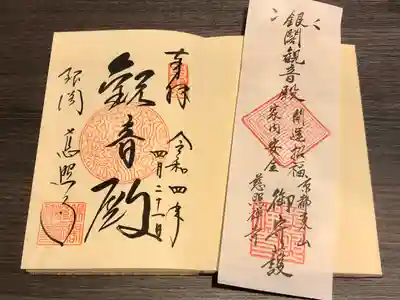 奉拝
令和四年
四月二十一日
觀音殿
銀閣
慈照寺
銀閣観音殿
開運招福
家内安全
京都東山
慈照禅寺
御守護